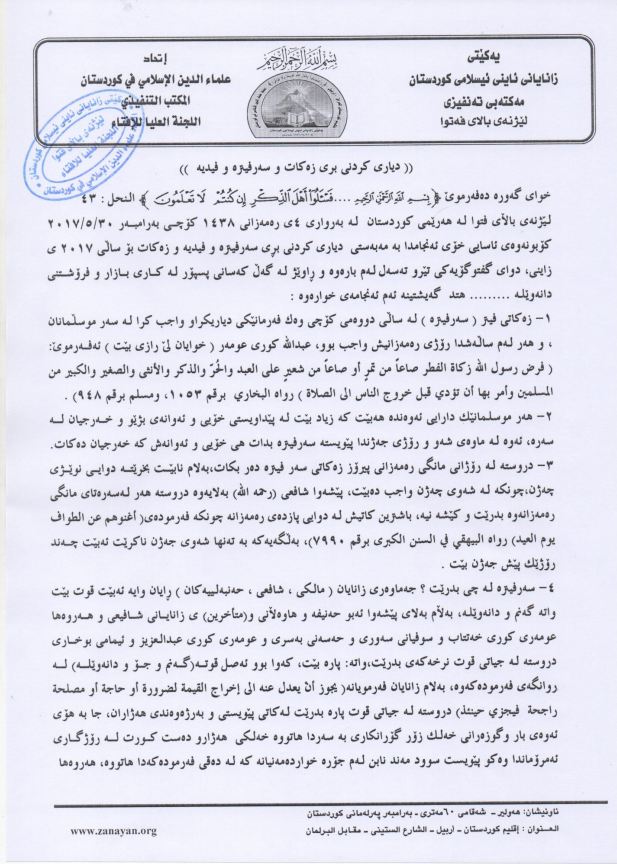 بسم الله الرحمن الرحيم
یەکێتی
زانایانی ئاینی ئیسلامی کوردستان
مەکتەبی تەنفیزی
لێژنەی بالای فەتوا
إتحاد
علماء الدين الإسلامي في كوردستان
المكتب التنفيذي
اللجنة العليا للإفتاء
(( دیاری کردنی بری زەکات و سەرفیترە و فیدیە ))
خوای گەورە دەفەرموێ ﴿ بسم الله الرحمن الرحيم ....فَسْئَلُوا أَهْلَ الذِّكْرِ إِن كُنتُمْ لَا تَعْلَمُونَ ﴾ النحل : ٤٣
لێژنەی بالآی فتوا لە هەرێمی کوردستان لە بەرواری ٤ی رەمەزانی ١٤٣٨ کۆچی بەرامبەر ٢٠١٧/٥/٣٠
کۆبونەوەی ئاسایی خۆی ئەنجامدا بە مەبەستی دیاری کردنی بڕی سەرفیترە و فیدیە و زەکات بۆ ساڵی ٢٠١٧ ی
زاینی، دوای گفتوگۆیەکی تێرو تەسەل لەم بارەوە و ڕاوێژ لە گەڵ کەسانی پسپۆر لە کاری بازار و فرۆشتنی
دانەوێلە ......... هتد گەیشتینە ئەم ئەنجامەی خوارەوە :
١- زەکاتی فیتر ( سەرفیترە ) لە ساڵی دووەمی کۆچی وەك فەرمانێکی دیاریکراو واجب کرا لە سەر موسڵمانان
، و هەر لەم ساڵەشدا رۆژی رەمەزانیش واجب بوو، عبدالله کوری عومەر ( خوایان لێ رازی بێت ) ئەفەرموێ:
( فرض رسول الله زكاة الفطر صاعاً من تمرٍ أو صاعاً من شعيرٍ على العبد والحُرّ والذكر والأنثى والصغير والكبير من
المسلمين وأمر بها أن تؤدي قبل خروج الناس الى الصلاة ) رواه البخاري برقم ١٠٥٣، ومسلم برقم ٩٤٨) .
٢- هەر موسلمانێك دارایی ئەوەندە هەبێت کە زیاد بێت لە پێداویستی خۆیی و ئەوانەی بژێو و خەرجیان لە
سەرە، ئەوە لە ماوەی شەو و رۆژی جەژندا پێویستە سەرفیترە بدات هی خۆیی و ئەوانەش کە خەرجیان دەکات.
٣- دروستە لە رۆژانی مانگی رەمەزانی پیرۆز زەکاتی سەر فیترە دەر بکات،بەلام نابێت بخرێتە دوایی نوێژی
جەژن،چونکە لە شەوی جەژن واجب دەبێت، پێشەوا شافعی (رحمه الله) بەلایەوە دروستە هەر لەسەرەتای مانگی
رەمەزانەوە بدرێت و کێشە نیە، باشترین کاتیش لە دوایی پازدەی رەمەزانە چونکە فەرمودەی( أغنوهم عن الطواف
يوم العيد) رواه البيهقي في السنن الكبرى برقم ٧٩٩٠)، بەڵگەیەکە بە تەنها شەوی جەژن ناکرێت ئەبێت چەند
رۆژێك پێش جەژن بێت .
٤- سەرفیترە لە چی بدرێت ؟ جەماوەری زانایان ( مالکی ، شافعی ، حەنبەلییەکان ) رایان وایە ئەبێت قوت بێت
واتە گەنم و دانەوێلە، بەڵام بەلای پێشەوا ئەبو حەنیفە و هاوەلآنی و(متأخرین) ی زانایانی شافیعی و هەروەها
عومەری کوری خەتتاب و سوفیانی سەوری و حەسەنی بەسری و عومەری کوری عبدالعزیز و ئیمامی بوخاری
دروستە لە جیاتی قوت نرخەکەی بدرێت،واتە: پارە بێت، کەوا بوو ئەصل قوتە(گەنم و جـۆ و دانەوێلە) لە
روانگەی فەرمودەکەوە، بەلام زانایان فەرمویانە( يجوز أن يعدل عنه الى إخراج القيمة لضرورة أو حاجة أو مصلحة
راجحة فيجزي حينئذ) دروستە لە جیاتی قوت پارە بدرێت لەکاتی پێویستی و بەرژەوەندی هەژاران، جا بە هۆی
ئەوەی بار وگوزەرانی خەلك زۆر گۆرانکاری بە سەردا هاتووە خەلکی هەژارو دەست کورت لە رۆژگاری
ئەمرۆماندا وەکو پێویست سوود مەند نابن لەم جۆرە خواردەمەنیانە کە لە دەقی فەرمودەکەدا هاتووە، هەروەها
ناونیشان: هەولێر- شەقامی ٦٠مەتری- بەرامبەر پەرلەمانی کوردستان
العنوان : إقليم كوردستان - أربيل - الشارع الستيني - مقابل البرلمان
www.zanayan.org